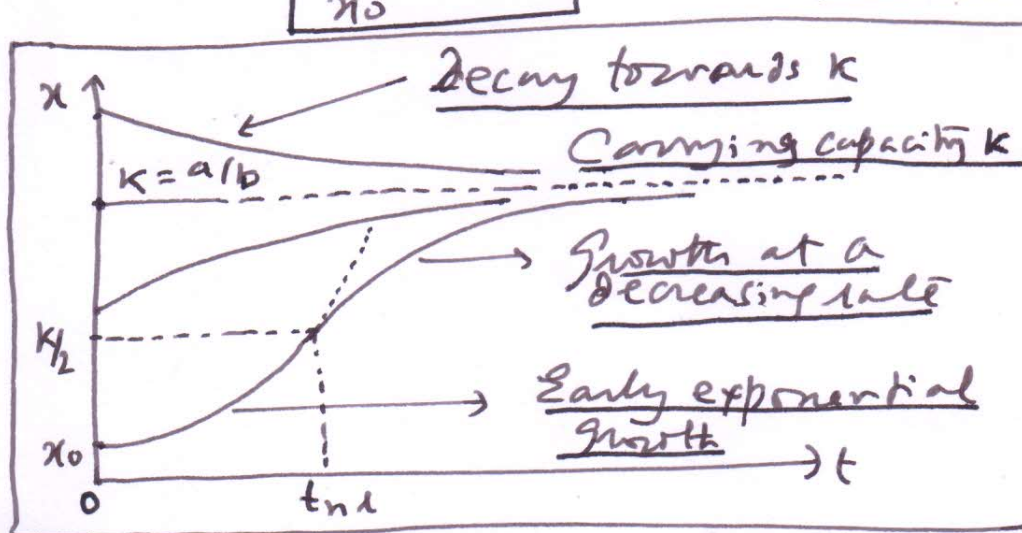 x0
x
Decay towards K
Carrying capacity K
K = a/b
Growth at a
decreasing rate
K/2
Early exponential
growth
x0
t
0
tnl